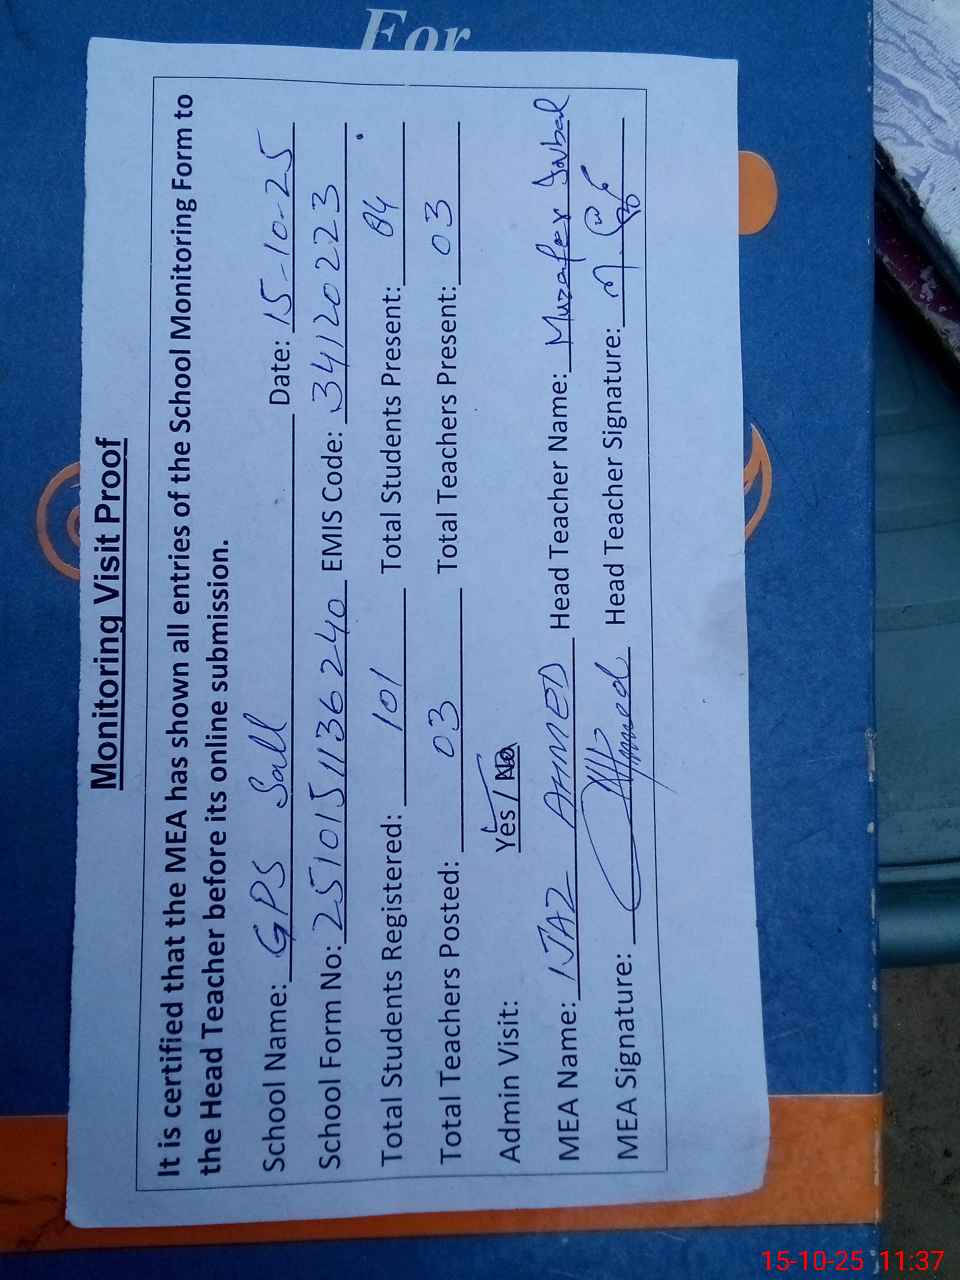 For
Monitoring Visit Proof
It is certified that the MEA has shown all entries of the School Monitoring Form to
the Head Teacher before its online submission.
School Name: GPS Sall Date: 15-10-25
School Form No: 2510151136240 EMIS Code: 34120223
Total Students Registered: 101 Total Students Present: 84
Total Teachers Posted: 03 Total Teachers Present: 03
Admin Visit: Yes / No
MEA Name: IJAZ AHMED Head Teacher Name: Muzafer Iqbal
MEA Signature: Ahmed Head Teacher Signature:
15-10-25 11:37